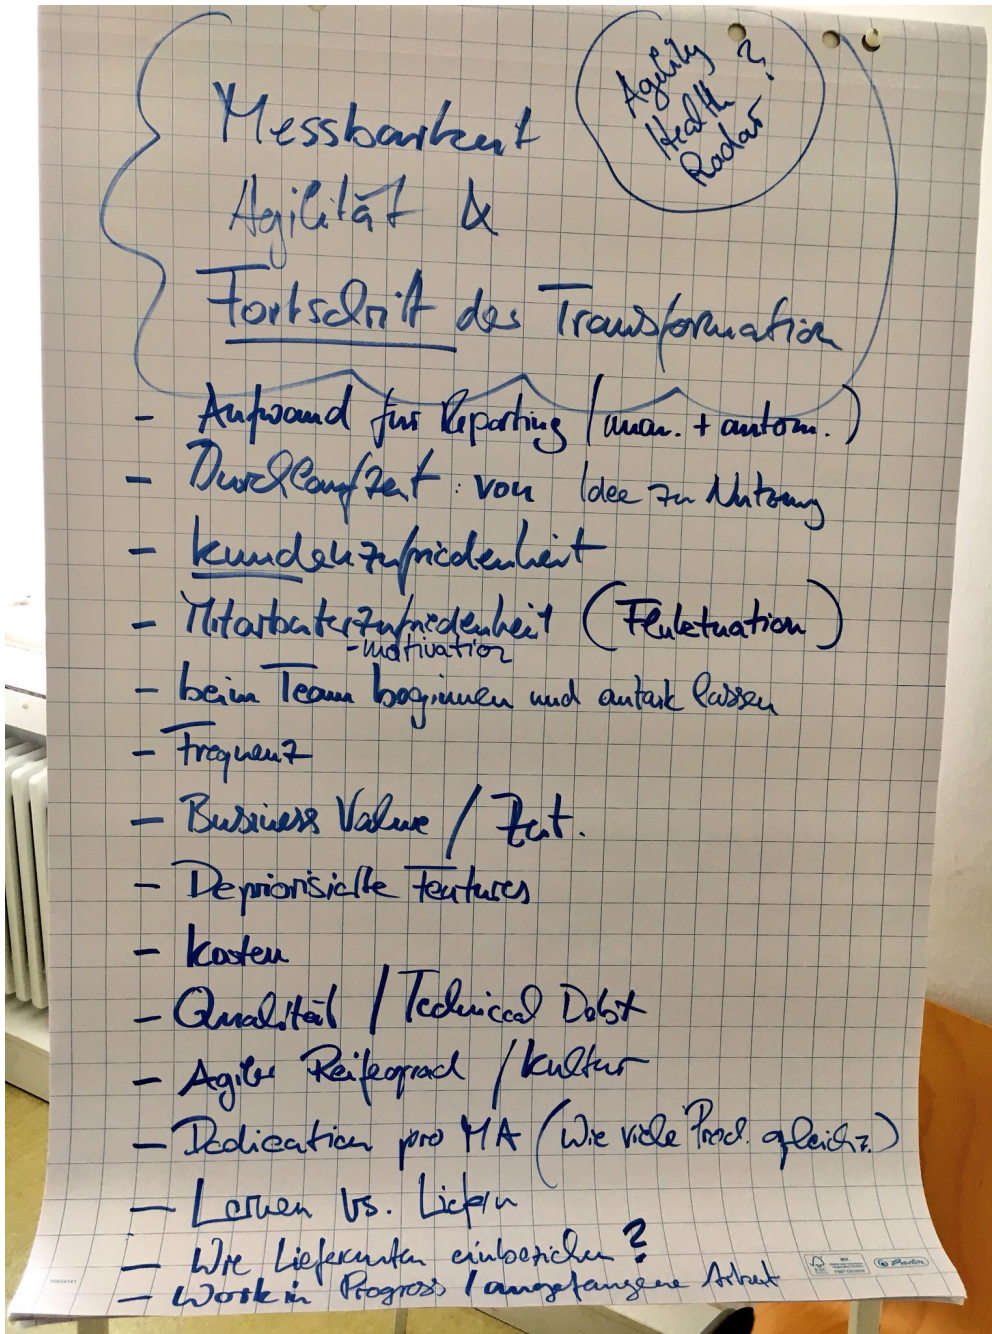 Agility
Health
Radar ?
Messbarkeit
Agilität &
Fortschritt der Transformation
- Aufwand für Reporting (man. + autom.)
- Durchlaufzeit: von Idee zu Nutzung
- Kundenzufriedenheit
- Mitarbeiterzufriedenheit (Fluktuation)
- motivation
- beim Team beginnen und autark lassen
- Frequenz
- Business Value / Zeit.
- Depriorisierte Features
- Kosten
- Qualität / Technical Debt
- Agiler Reifegrad / Kultur
- Dedication pro MA (Wie viele Prod. gleichz.)
- Lernen vs. Liefern
- Wie Lieferanten einbeziehen?
- Work in Progress / angefangene Arbeit
FSC
MIX